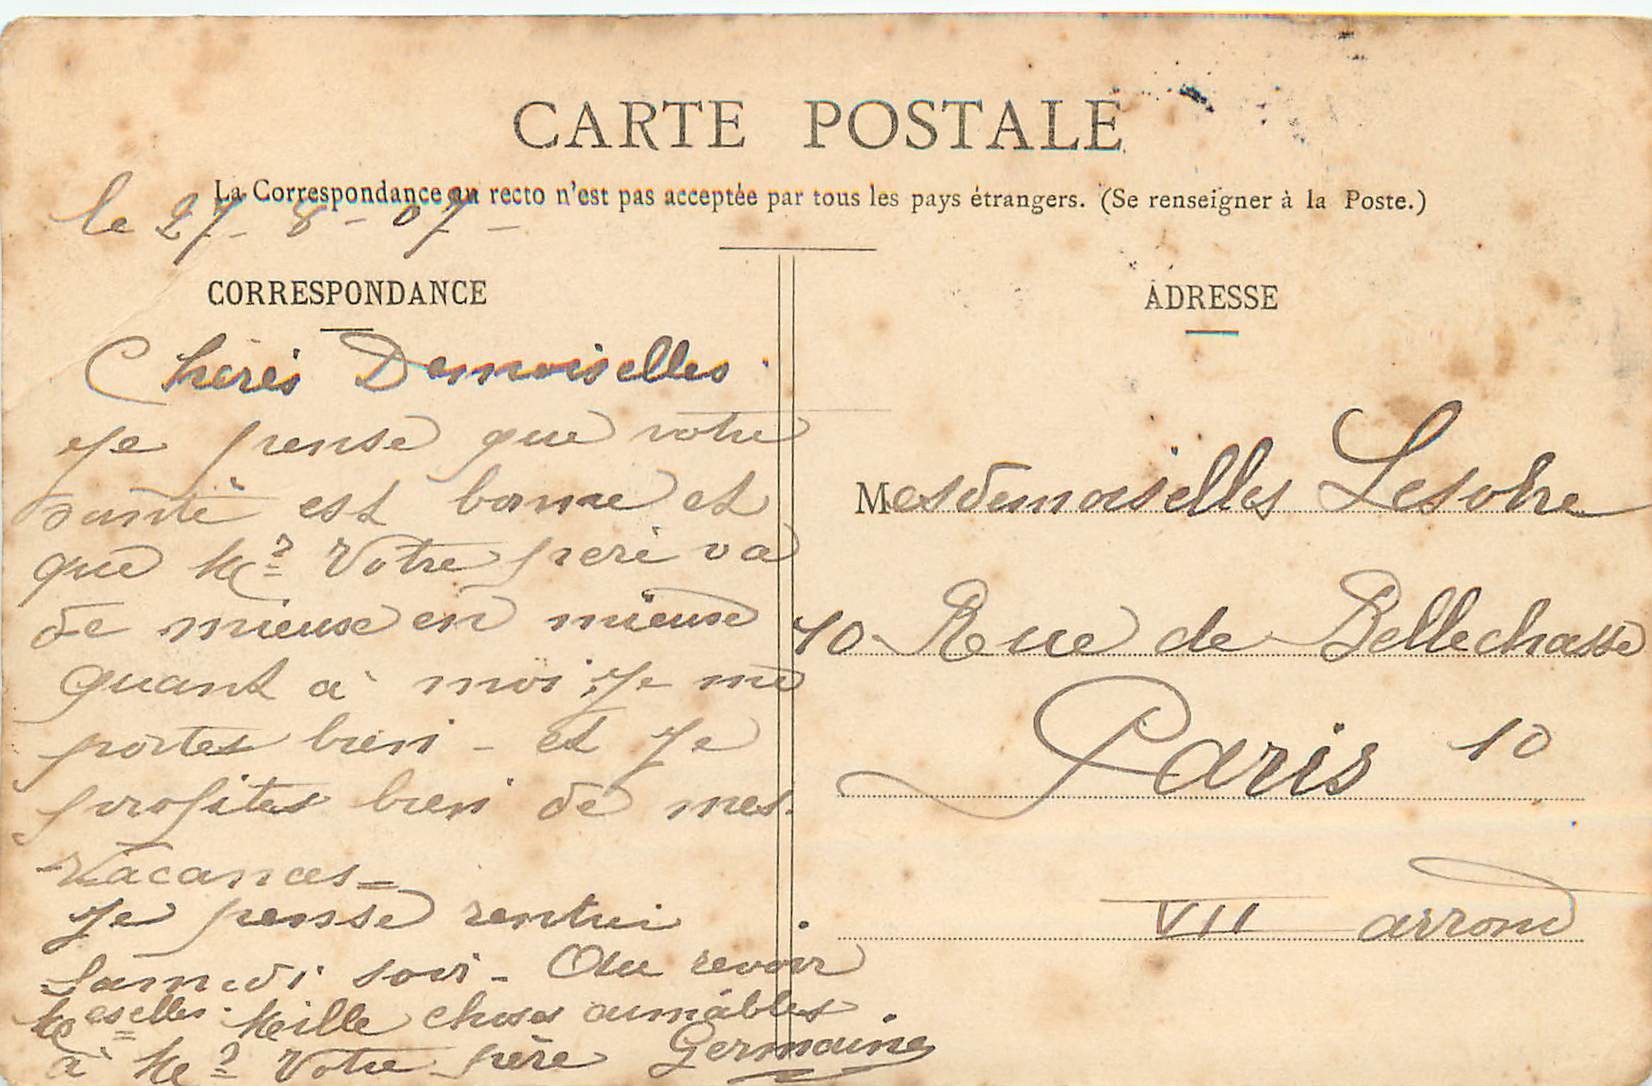 CARTE POSTALE
La Correspondance au recto n'est pas acceptée par tous les pays étrangers. (Se renseigner à la Poste.)
le 27 - 8 - 07 -
CORRESPONDANCE
Chères Demoiselles
Je pense que votre
santé est bonne et
que Mr Votre père va
de mieux en mieux
quant à moi, Je me
portes bien - et Je
profites bien de mes
Vacances -
Je pense rentrer
Samedi soir - Au revoir
Meselles. Mille choses aimables
à Mr Votre père Germaine
ADRESSE
Mesdemoiselles
10 Rue de Bellechasse
Paris 10
VII arrond